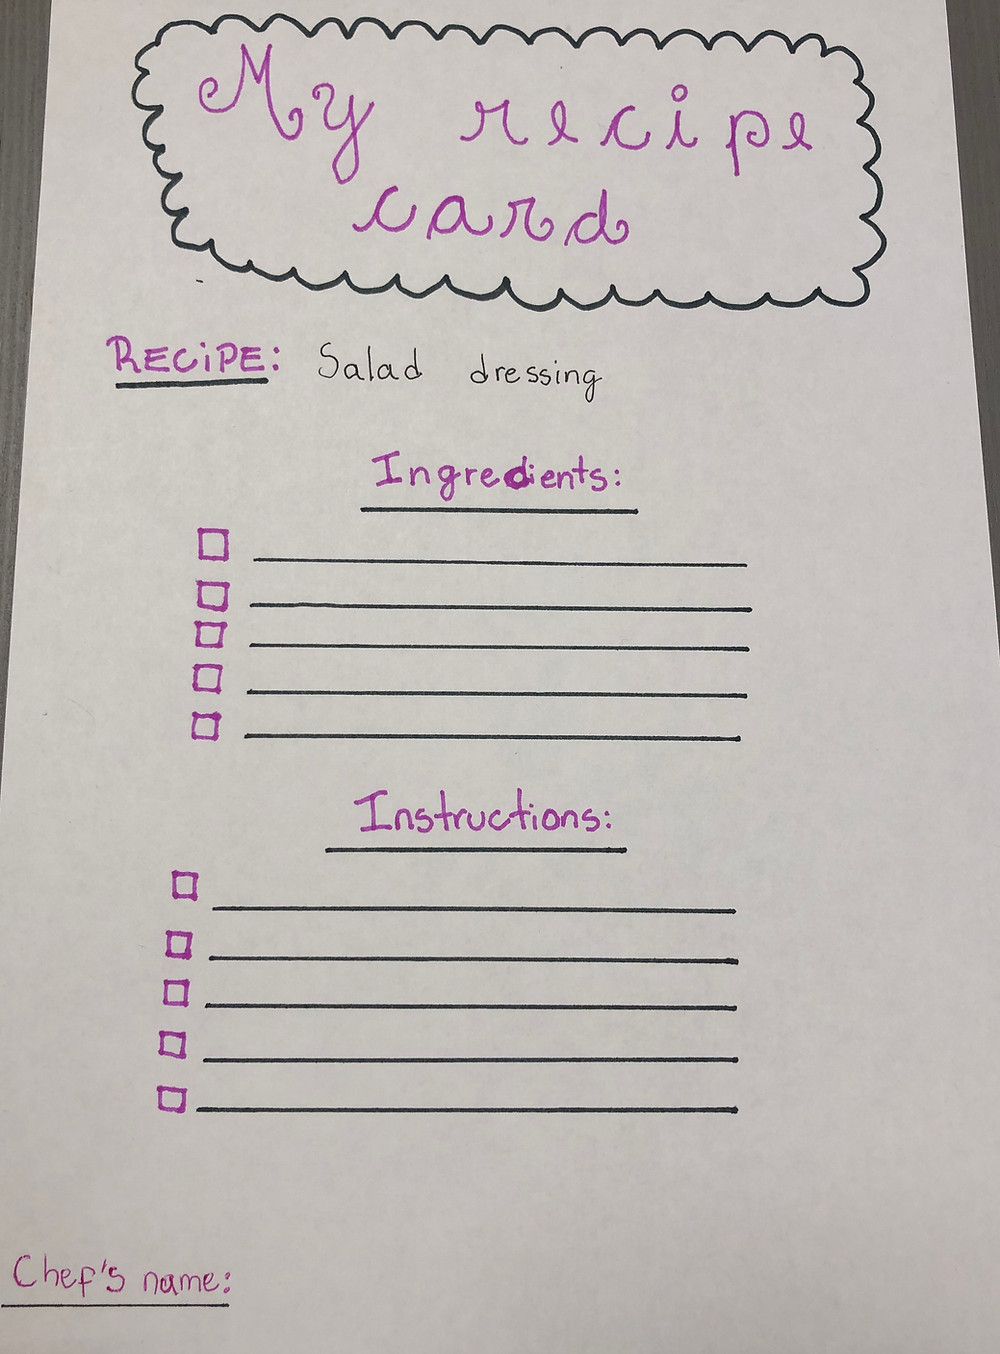 My recipe
card
RECiPE: Salad dressing
Ingredients:
Instructions:
Chef's name: